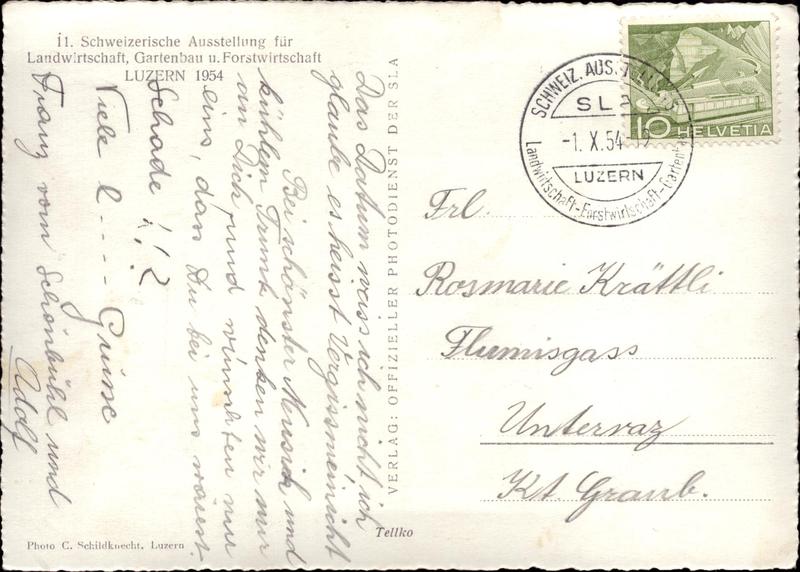 11. Schweizerische Ausstellung für
Landwirtschaft, Gartenbau u. Forstwirtschaft
LUZERN 1954
Das Datum weiss ich nicht, ich
glaube es heisst Vergissmeinnicht
Bei schönster Musik und
kühlem Trunk denken wir nur
an Dich, und wünschten nur
eins, dass Du bei uns wärest.
Schade!!?
Viele l.... Grüsse
Franz vom Schönbühl und
Adolf
Photo C. Schildknecht, Luzern
VERLAG: OFFIZIELLER PHOTODIENST DER SLA
Tellko
SCHWEIZ. AUS
SLA
-1. X. 54
LUZERN
Landwirtschaft-Forstwirtschaft-Gartenb
10 HELVETIA
Frl.
Rosmarie Krättli
Flumisgass
Untervaz
Kt. Graub.